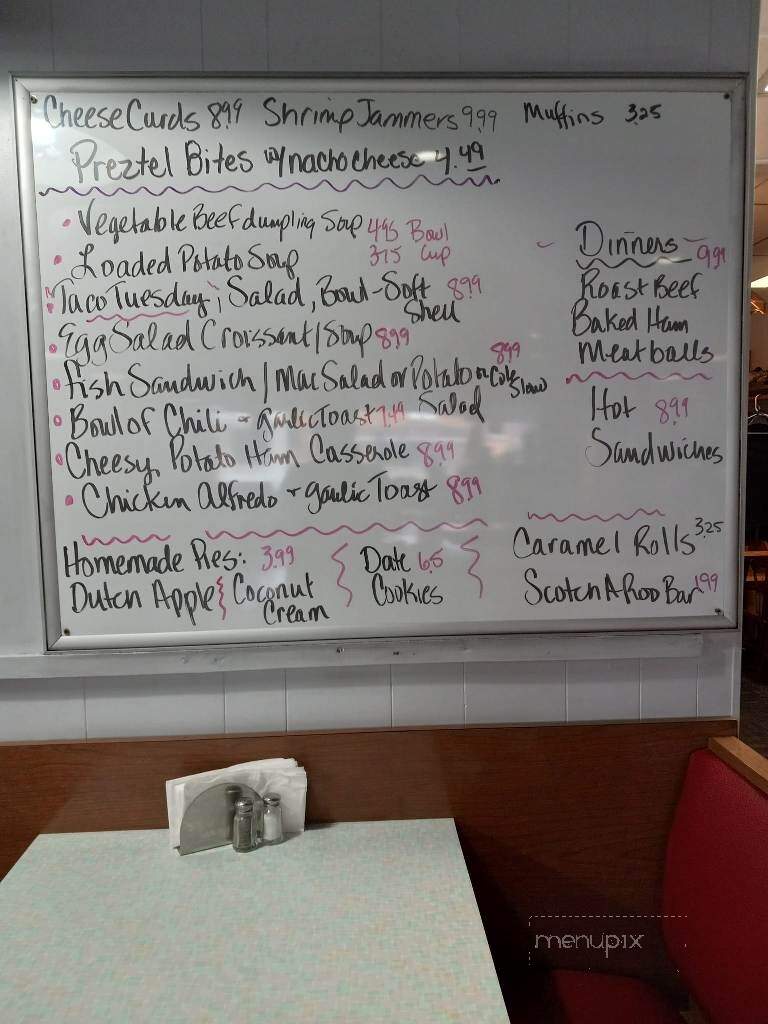 Cheese Curds 8.99 Shrimp Jammers 9.99 Muffins 3.25
Preztel Bites w/nacho cheese 4.49
Vegetable Beef dumpling Soup 4.95 Bowl
Loaded Potato Soup 3.75 Cup
Taco Tuesday; Salad, Bowl-Soft Shell 8.99
Egg Salad Croissant/Soup 8.99
Fish Sandwich/Mac Salad or Potato Salad or Cole Slaw 8.99
Bowl of Chili - garlic Toast 7.49
Cheesy Potato Ham Casserole 8.99
Chicken Alfredo + gaulic Toast 8.99
Dinners 9.99
Roast Beef
Baked Ham
Meatballs
Hot 8.99
Sandwiches
Homemade Pies: 3.99
Dutch Apple Coconut Cream
Date
Cookies
Caramel Rolls 3.25
Scotch A Roo Bar 1.99
menupix